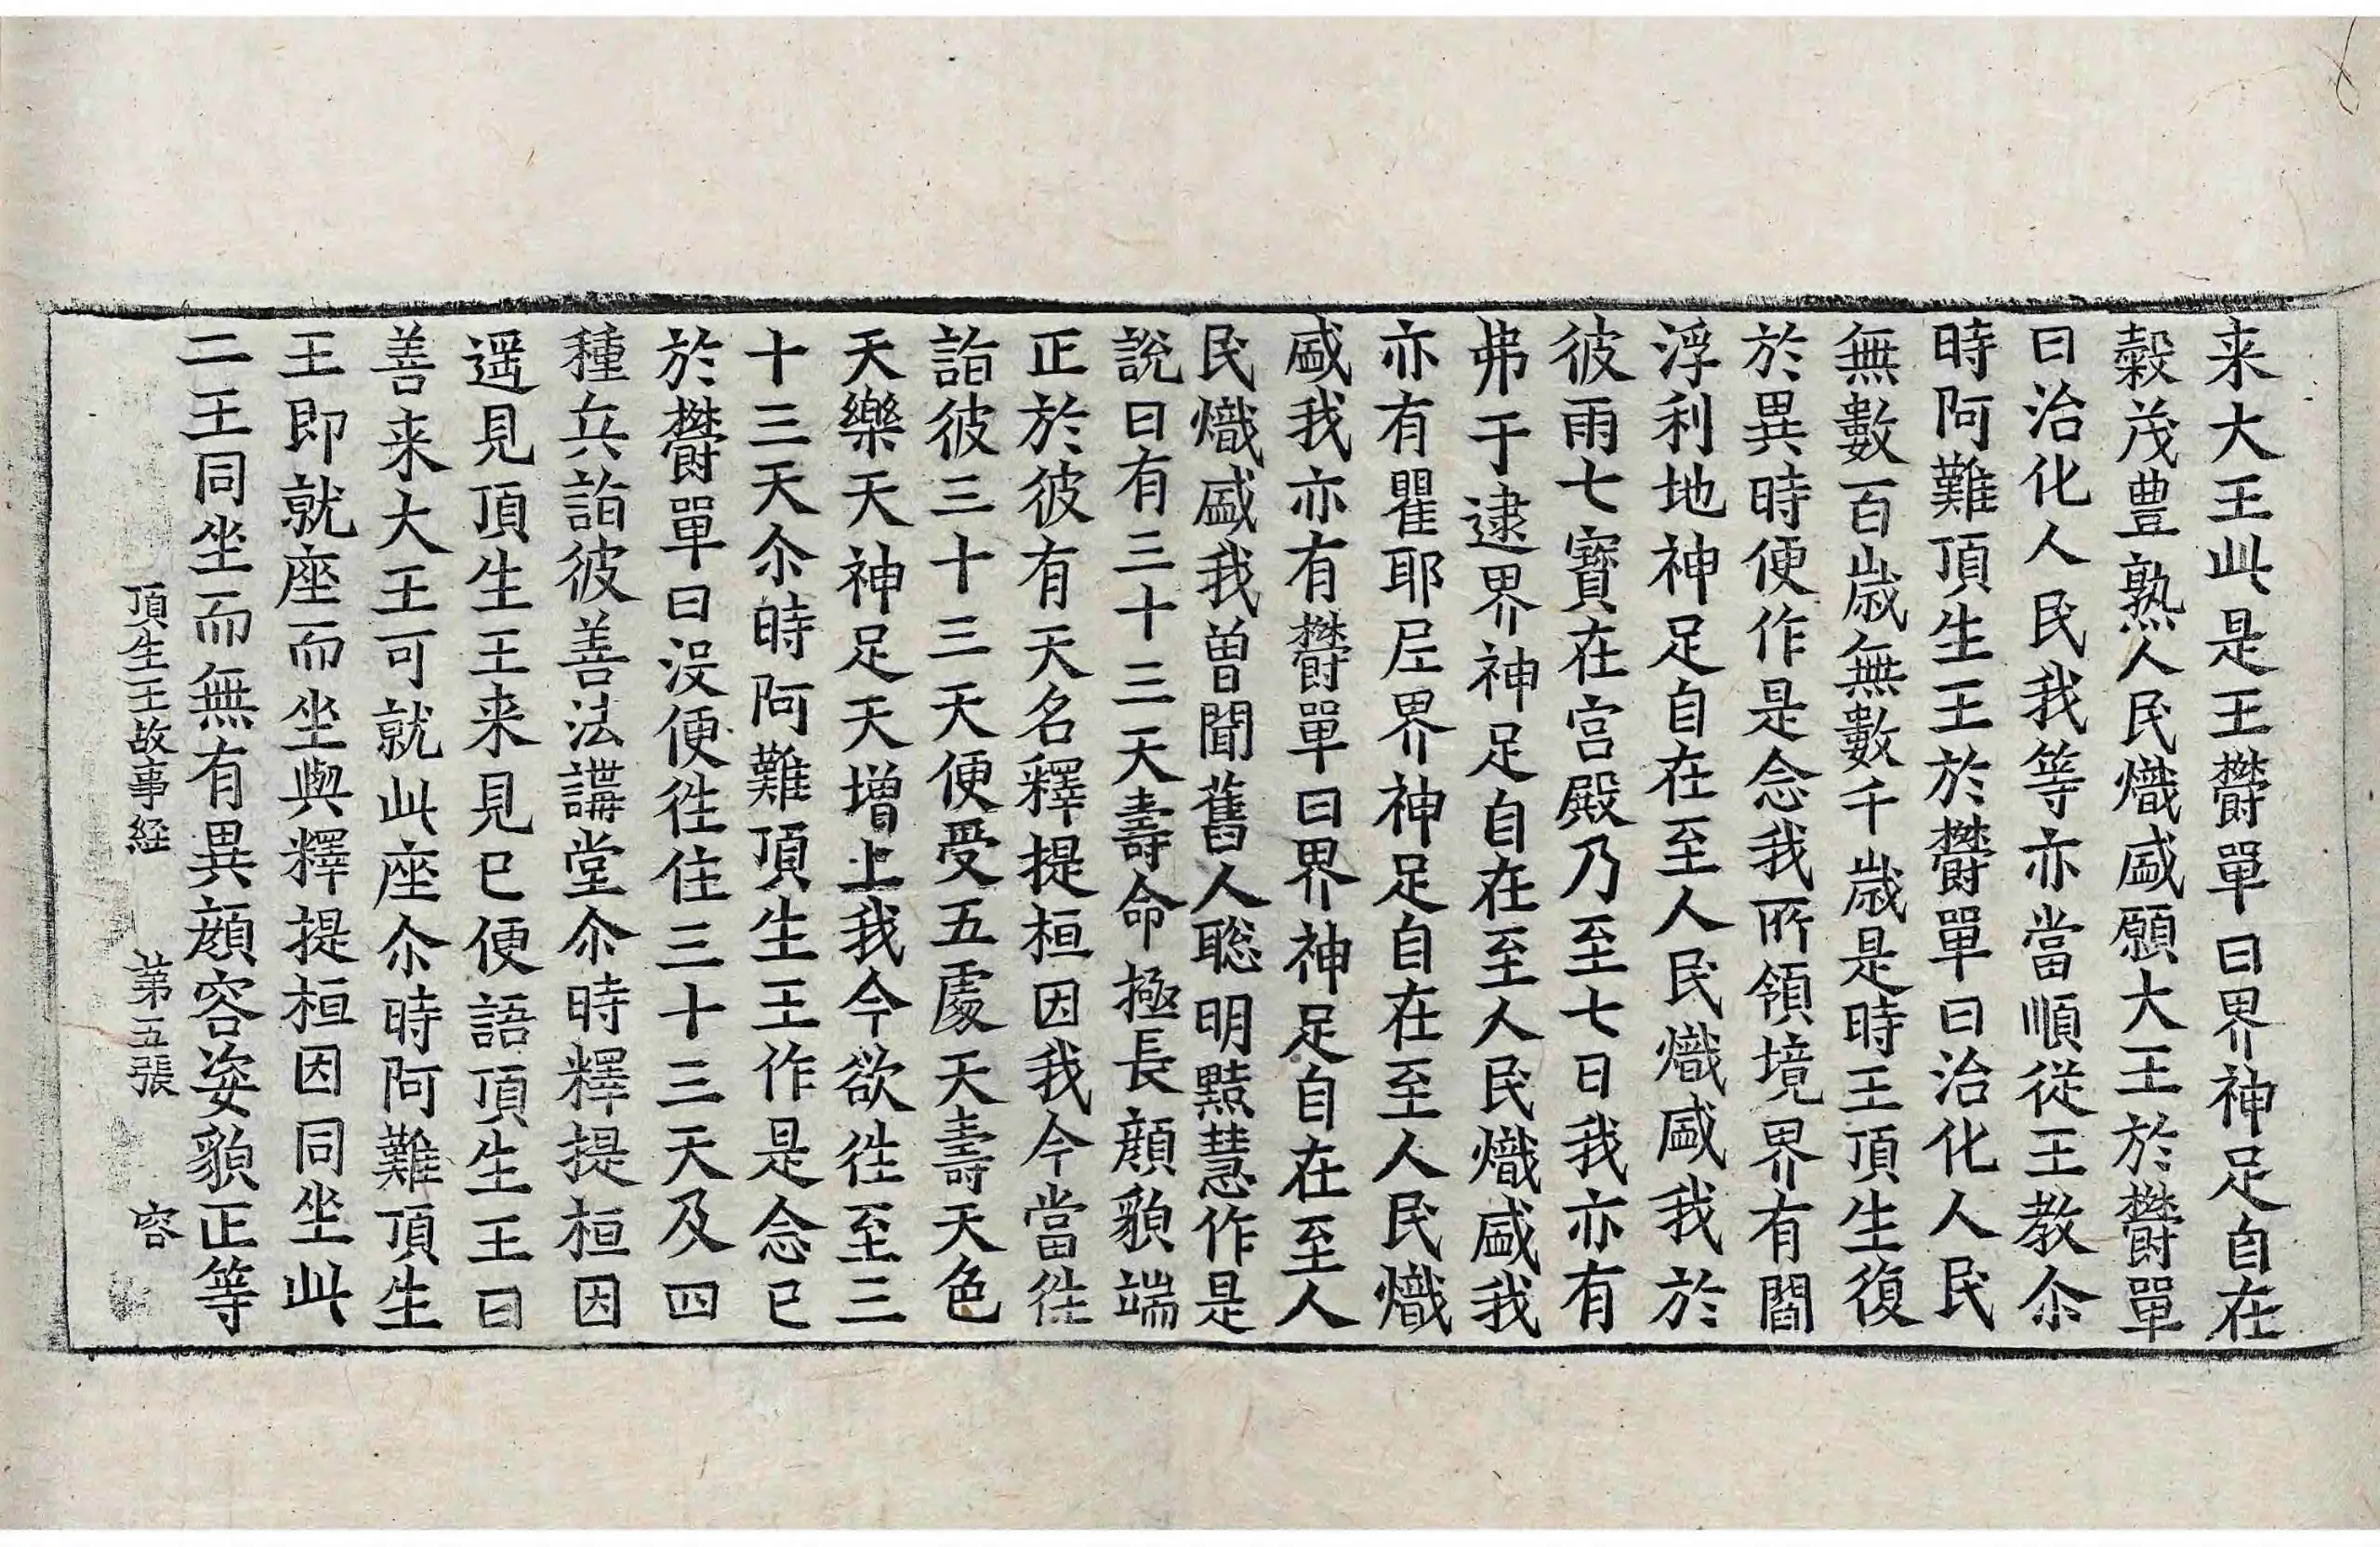 来大王此是王欝單曰界神足自在
穀茂豊熟人民熾盛願大王於欝單
曰治化人民我等亦當順從王教尒
時阿難頂生王於欝單曰治化人民
無數百歲無數千歲是時王頂生復
於異時便作是念我所領境界有閻
浮利地神足自在至人民熾盛我於
彼雨七寶在宮殿乃至七日我亦有
弗于逮界神足自在至人民熾盛我
亦有瞿耶尼界神足自在至人民熾
盛我亦有欝單曰界神足自在至人
民熾盛我曾聞舊人聡明黠慧作是
說曰有三十三天壽命極長顔貌端
正於彼有天名釋提桓因我今當徃
詣彼三十三天便受五處天壽天色
天樂天神足天增上我今欲徃至三
十三天尒時阿難頂生王作是念已
於欝單曰没便徃住三十三天及四
種兵詣彼善法講堂尒時釋提桓因
遥見頂生王来見已便語頂生王曰
善来大王可就此座尒時阿難頂生
王即就座而坐與釋提桓因同坐此
二王同坐而無有異顔容姿貌正等
頂生王故事経 第五張 容